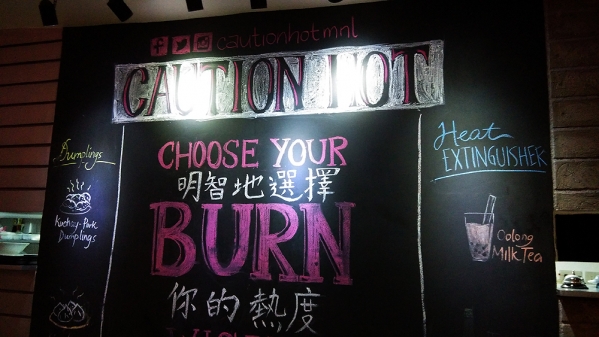 cautionhotmnl
CAUTION HOT
Dumplings
Kuchay-Pork
Dumplings
CHOOSE YOUR
明智地選擇
BURN
你的熱度
Heat
EXTINGUISHER
Oolong
Milk Tea